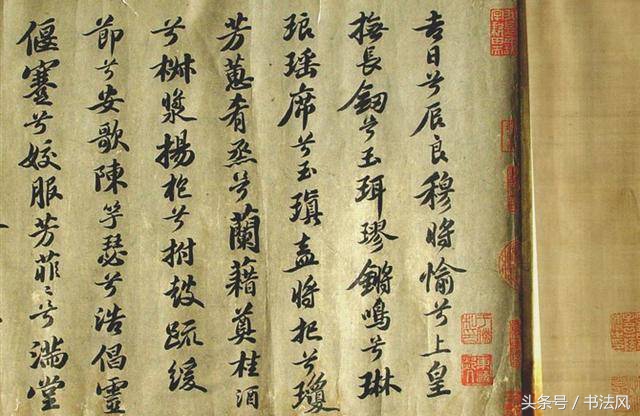 吉日兮辰良穆將愉兮上皇
撫長劒兮玉珥璆鏘鳴兮琳
琅瑶席兮玉瑱盍將把兮瓊
芳蕙肴烝兮蘭藉奠桂酒
兮椒漿揚枹兮拊鼓疏緩
節兮安歌陳竽瑟兮浩倡靈
偃蹇兮姣服芳菲〻兮滿堂
头条号 / 书法风